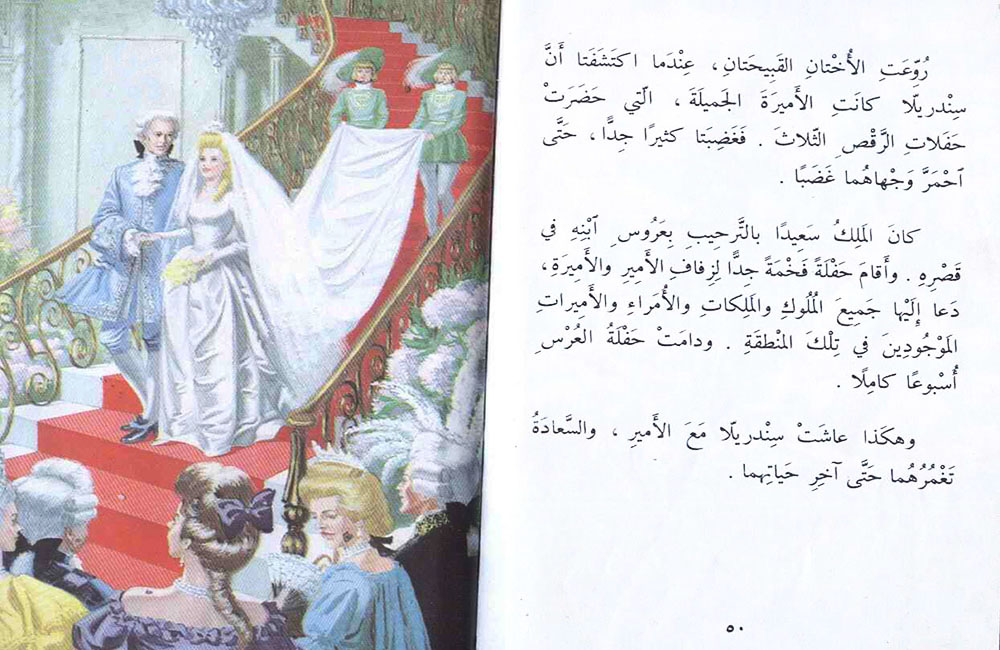 رُوِّعَتِ الأُخْتانِ القَبِيحَتانِ، عِنْدَما اكتَشَفَتا أَنَّ
سِنْدريلّا كانَتِ الأَميرَةَ الجَميلَةَ، الّتي حَضَرَتْ
حَفَلاتِ الرَّقْصِ الثّلاثَ. فَغَضِبَتا كثيرًا جِدًّا، حَتَّى
ٱحْمَرَّ وَجْهاهُما غَضَبًا.
كانَ المَلِكُ سَعِيدًا بالتَّرحِيبِ بِعَرُوسِ ٱبْنِهِ في
قَصْرِهِ. وأَقامَ حَفْلَةً فَخْمَةً جِدًّا لِزِفافِ الأَمِيرِ والأَمِيرَةِ،
دَعا إِلَيْها جَمِيعَ المُلُوكِ والمَلِكاتِ والأُمَراءِ والأَمِيراتِ
المَوْجُودِينَ في تِلْكَ المْنطقَةِ. ودامَتْ حَفْلَةُ العُرْسِ
أُسْبوعًا كامِلًا.
وهكَذا عاشَتْ سِنْدريلّا مَعَ الأَميرِ، والسَّعادَةُ
تَغْمُرُهُما حَتَّى آخِرِ حَياتِهِما.
٥٠